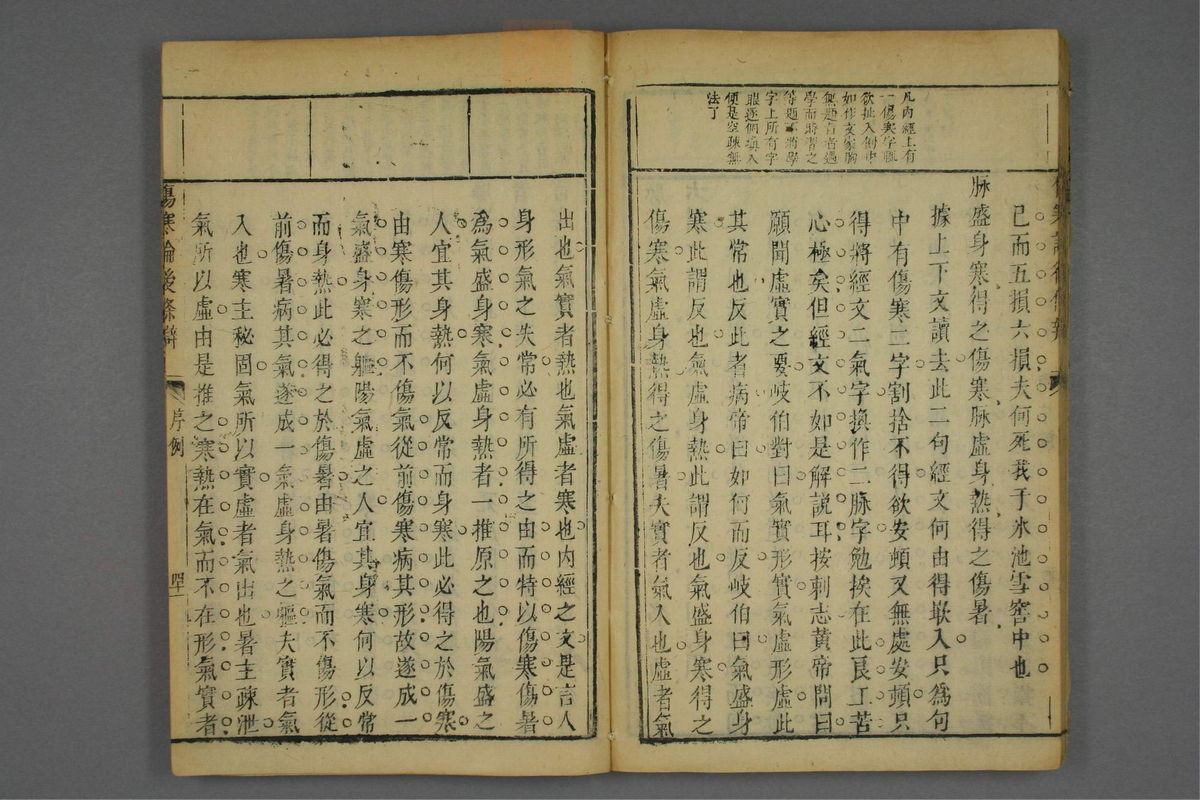 凡內經上有
一傷寒字輒
欲扯入倒中
如作文家胸
無題旨者遇
學而時習之
等題不將學
字上所有字
眼逐個填入
便是空疎無
法了
已而五損六損夫何死我于氷池雪窖中也
脉盛身寒得之傷寒脉虛身熱得之傷暑
據上下文讀去此二句經文何由得嵌入只為何
中有傷寒二字割捨不得欲安頓又無處安頓只
得將經文二氣字換作二脉字勉挨在此良工苦
心極矣但經文不如是解說耳按刺志黃帝問曰
願聞虛實之要岐伯對曰氣實形實氣虛形虛此
其常也反此者病帝曰如何而反岐伯曰氣盛身
寒此謂反也氣虛身熱此謂反也氣盛身寒得之
傷寒氣虛身熱得之傷暑夫實者氣入也虛者氣
出也氣實者熱也氣虛者寒也內經之文是言人
身形氣之失常必有所得之由而特以傷寒傷暑
為氣盛身寒氣虛身熱者一推原之也陽氣盛之
人宜其身熱何以反常而身寒此必得之於傷寒
由寒傷形而不傷氣從前傷寒病其形故遂成一
氣盛身寒之軀陽氣虛之人宜其身寒何以反常
而身熱此必得之於傷暑由暑傷氣而不傷形從
前傷暑病其氣遂成一氣虛身熱之軀夫實者氣
入也寒主秘固氣所以實虛者氣出也暑主疎泄
氣所以虛由是推之寒熱在氣而不在形氣實者
傷寒論後條辯
序例
四十一